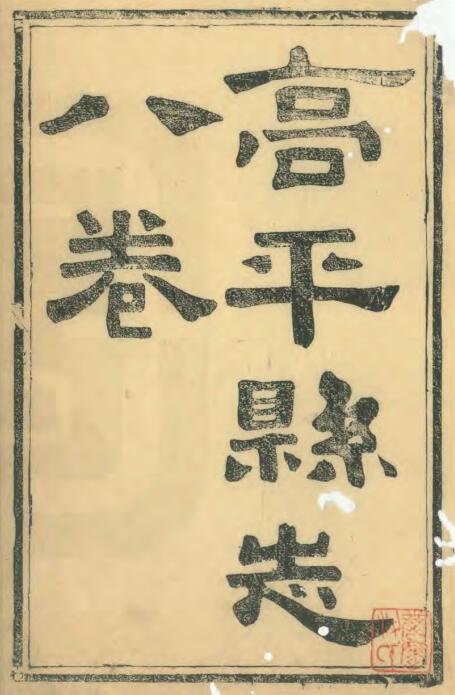 高平縣志
八卷